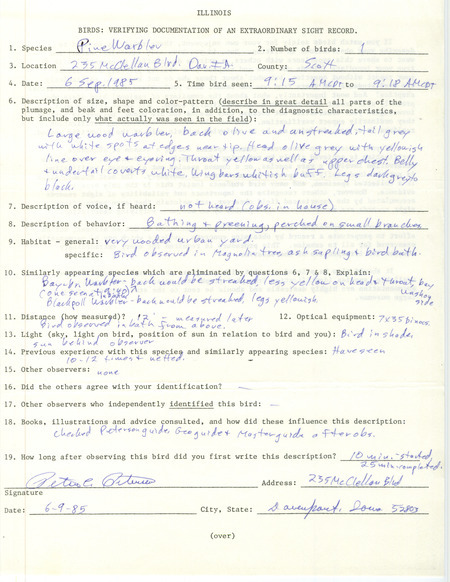 ILLINOIS
BIRDS: VERIFYING DOCUMENTATION OF AN EXTRAORDINARY SIGHT RECORD.
1. Species Pine Warbler 2. Number of birds: 1
3. Location 235 McClellan Blvd. Dav IA County: Scott
4. Date: 6 Sep. 1985 5. Time bird seen: 9:15 AM CDT to 9:18 AM CDT
6. Description of size, shape and color-pattern (describe in great detail all parts of the
plumage, and beak and feet coloration, in addition, to the diagnostic characteristics,
but include only what actually was seen in the field):
Large wood warbler, back olive and unstreaked, tail grey
with white spots at edges near tip. Head olive grey with yellowish
line over eye & eyering. Throat yellow as well as upper chest. Belly
& undertail coverts white. Wingbars whitish buff. Legs dark grey to
black.
7. Description of voice, if heard: not heard (obs. in house)
8. Description of behavior: Bathing & preening, perched on small branches
9. Habitat - general: very wooded urban yard.
specific: Bird observed in Magnolia tree, ash sapling & bird bath.
10. Similarly appearing species which are eliminated by questions 6, 7 & 8. Explain:
Bay-br. Warbler - back would be streaked, less yellow on head & throat, bay
wash on side
Blackpoll Warbler - back would be streaked, legs yellowish.
11. Distance (how measured)? 12' - measured later 12. Optical equipment: 7x35 binocs.
Bird observed in bath from above.
13. Light (sky, light on bird, position of sun in relation to bird and you): Bird in shade,
sun behind observer
14. Previous experience with this species and similarly appearing species: Have seen
10-12 times & netted.
15. Other observers: none
16. Did the others agree with your identification? —
17. Other observers who independently identified this bird: —
18. Books, illustrations and advice consulted, and how did these influence this description:
Checked Peterson guide, Geo guide & Master guide after obs.
19. How long after observing this bird did you first write this description? 10 min. - started,
25 min. - completed.
Peter C. Petersen Address: 235 McClellan Blvd
Signature
Date: 6-9-85 City, State: Davenport, Iowa 52803
(over)